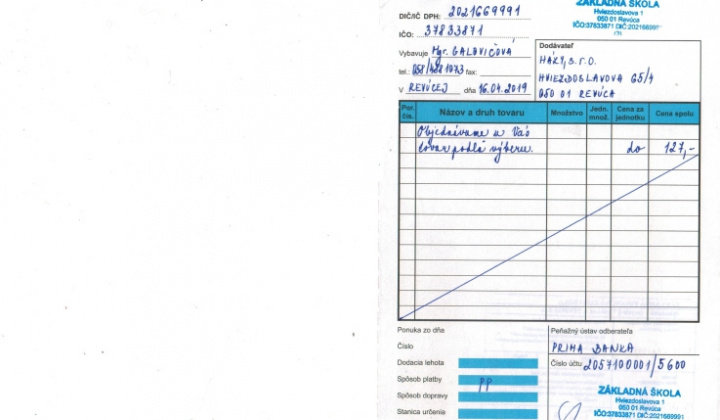 ZÁKLADNÁ ŠKOLA
Hviezdoslavova 1
050 01 Revúca
IČO:37833871 DIČ:2021669991
DIČ/IČ DPH: 2021669991
IČO: 37833871
Vybavuje Mgr. GALOVIČOVÁ
tel.: 058/4881073 fax:
V REVÚCEJ dňa 16.04.2019
Dodávateľ
HÁKY, s.r.o.
HVIEZDOSLAVOVA 65/4
050 01 REVÚCA
Por. čís. Názov a druh tovaru Množstvo Jedn. množ. Cena za jednotku Cena spolu
Objednávame u Vás
tovar podľa výberu. do 127,-
Ponuka zo dňa
Číslo
Dodacia lehota
Spôsob platby PP
Spôsob dopravy
Stanica určenie
Peňažný ústav odberateľa
PRIMA BANKA
Číslo účtu 2057100001/5600
ZÁKLADNÁ ŠKOLA
Hviezdoslavova 1
050 01 Revúca
IČO:37833871 DIČ:2021669991